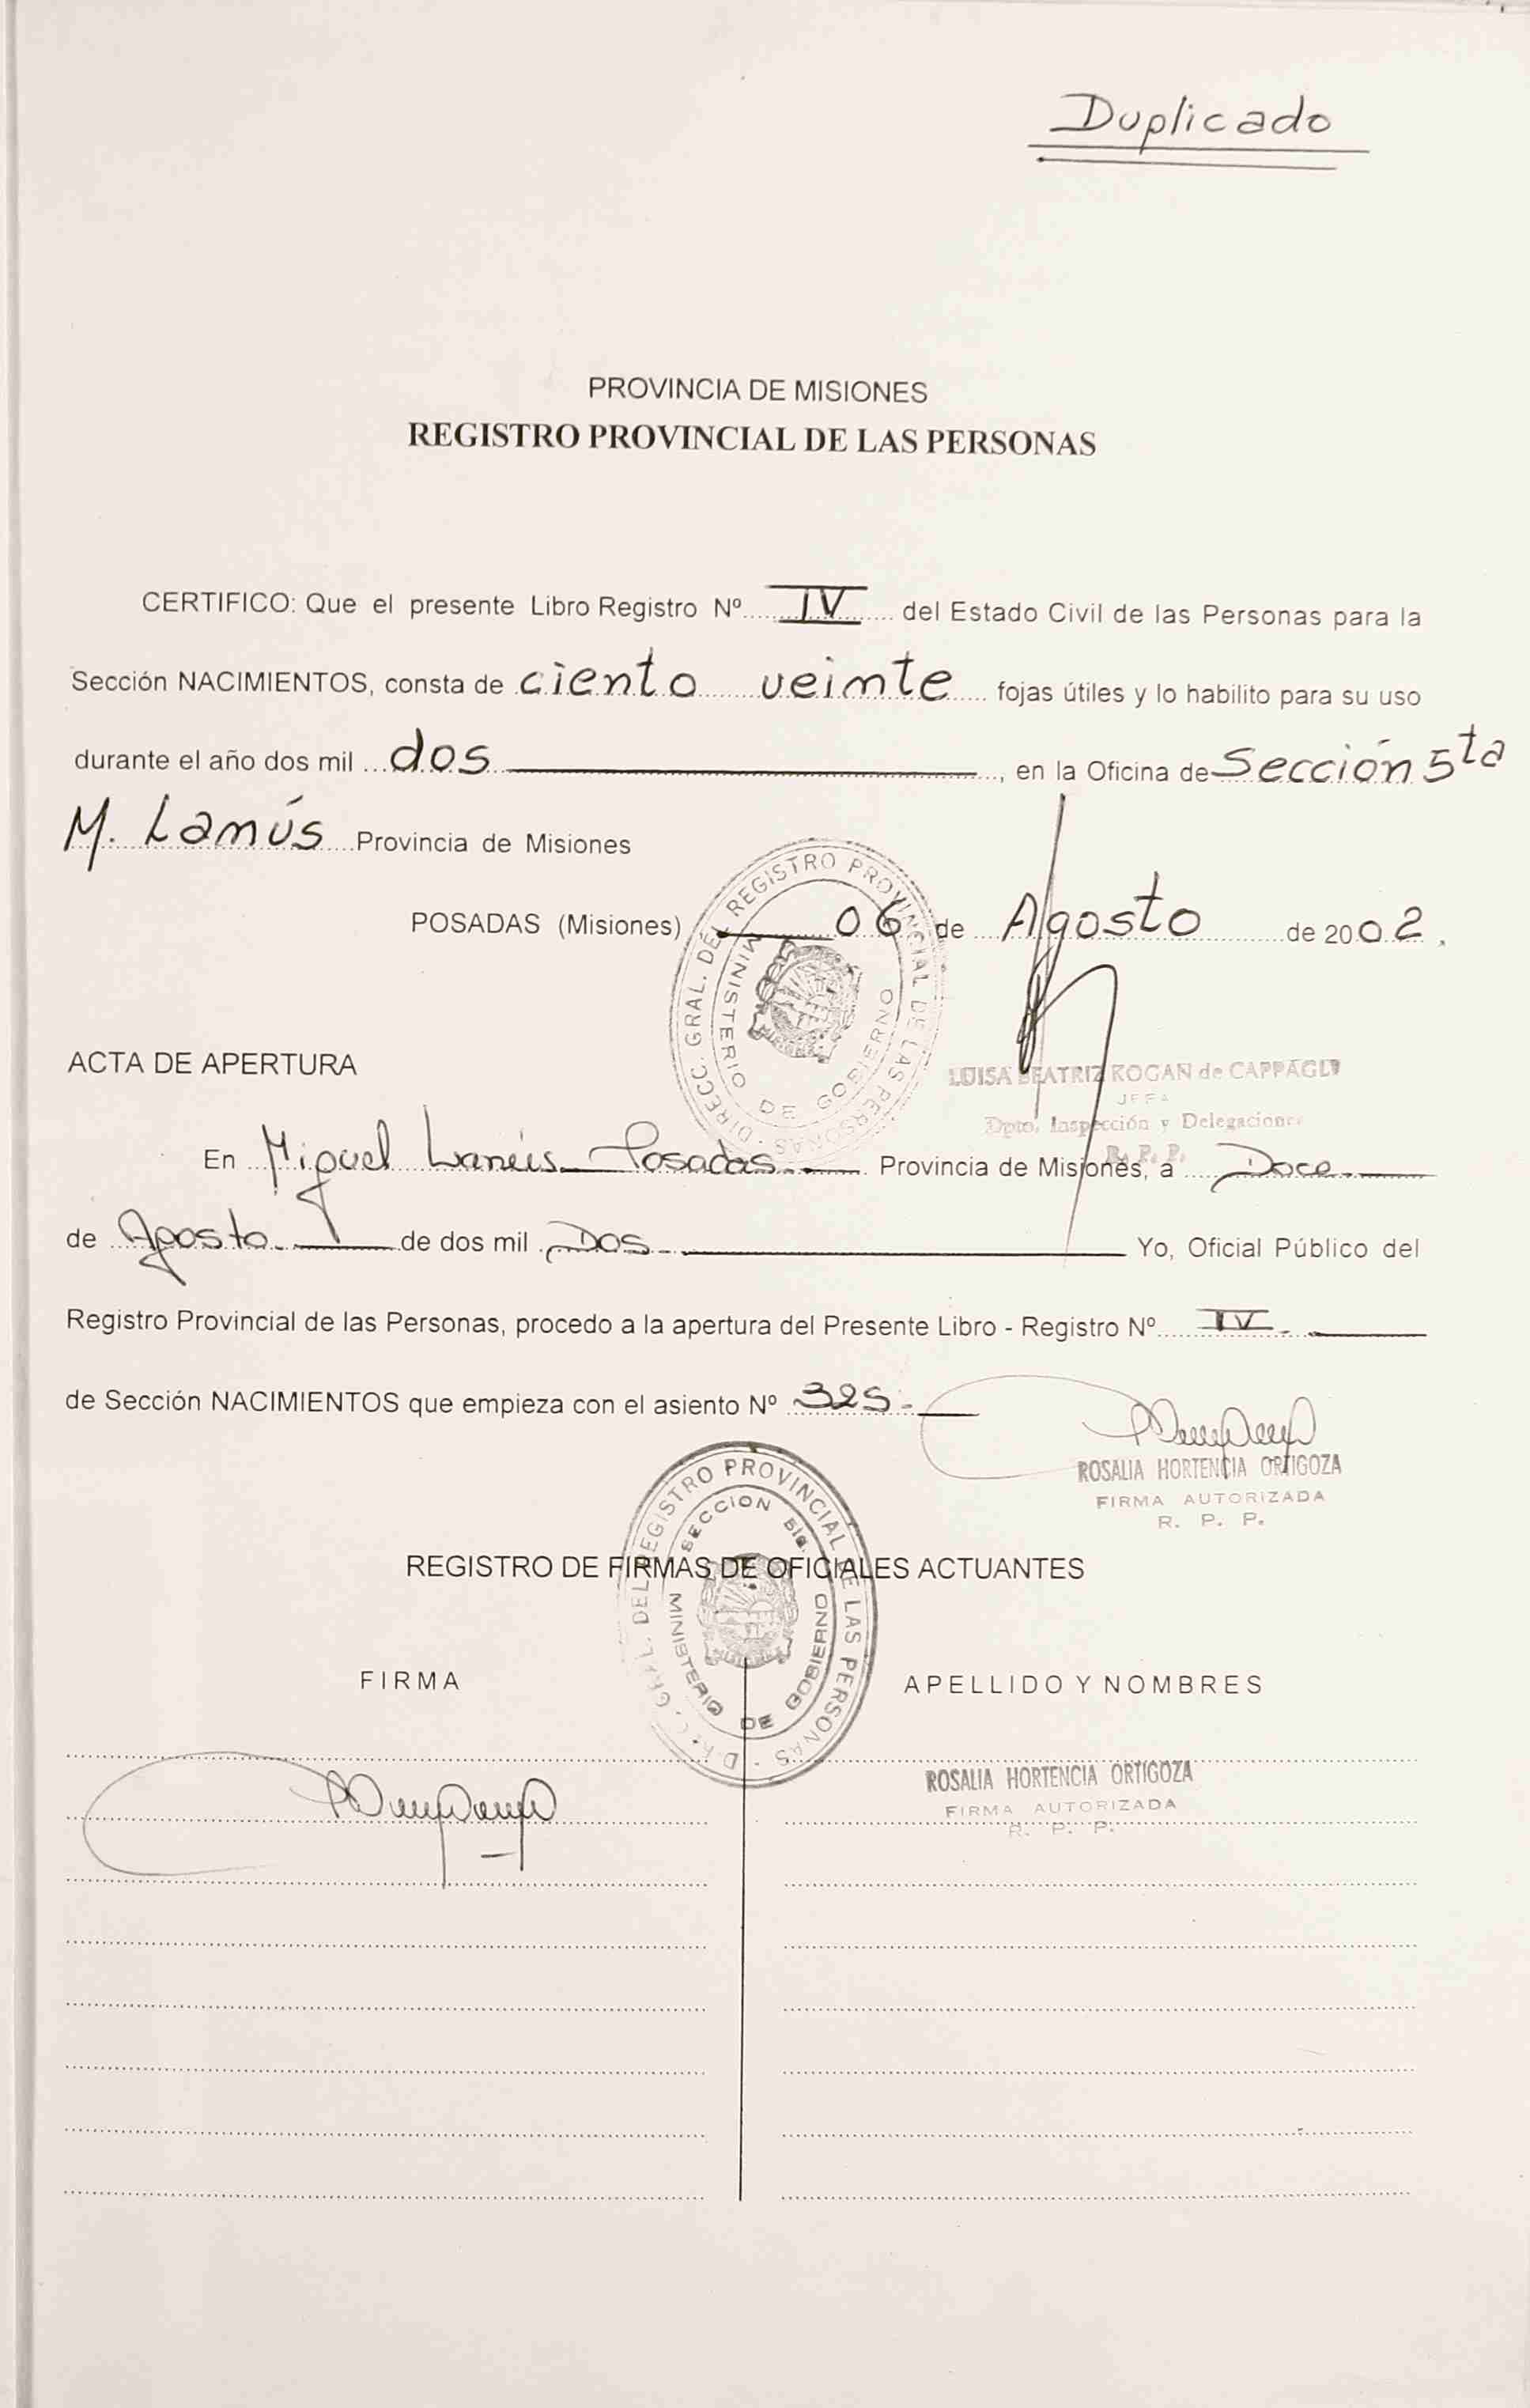 Duplicado
PROVINCIA DE MISIONES
REGISTRO PROVINCIAL DE LAS PERSONAS
CERTIFICO: Que el presente Libro Registro Nº IV del Estado Civil de las Personas para la
Sección NACIMIENTOS, consta de ciento veinte fojas útiles y lo habilito para su uso
durante el año dos mil dos, en la Oficina de Sección 5ta
M. Lanús Provincia de Misiones
POSADAS (Misiones) 06 de Agosto de 2002.
DIRECC. GRAL. DEL REGISTRO PROVINCIAL DE LAS PERSONAS
MINISTERIO DE GOBIERNO
LUISA BEATRIZ ROGAN de CAPPAGLI
JEFA
Dpto. Inspección y Delegaciones
R. P. P.
ACTA DE APERTURA
En Miguel Lanús - Posadas - Provincia de Misiones, a Doce
de Agosto de dos mil Dos Yo, Oficial Público del
Registro Provincial de las Personas, procedo a la apertura del Presente Libro - Registro Nº IV
de Sección NACIMIENTOS que empieza con el asiento Nº 325-
ROSALIA HORTENCIA ORTIGOZA
FIRMA AUTORIZADA
R. P. P.
DIREC. GRAL. DEL REGISTRO PROVINCIAL DE LAS PERSONAS
SECCION 5ta.
MINISTERIO DE GOBIERNO
REGISTRO DE FIRMAS DE OFICIALES ACTUANTES
FIRMA APELLIDO Y NOMBRES
ROSALIA HORTENCIA ORTIGOZA
FIRMA AUTORIZADA
R. P. P.